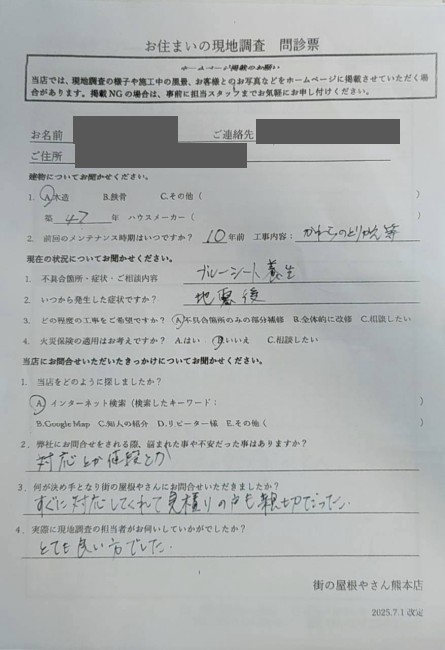 お住まいの現地調査　問診票
ホームページ掲載のお願い
当店では、現地調査の様子や施工中の風景、お客様とのお写真などをホームページに掲載させていただく場
合があります。掲載NGの場合は、事前に担当スタッフまでお気軽にお申し付けください。
お名前　ご連絡先
ご住所
建物についてお聞かせください。
1. A.木造　B.鉄骨　C.その他（　）
築 47 年　ハウスメーカー（　）
2. 前回のメンテナンス時期はいつですか？ 10年前　工事内容：かわらのとりかえ等
現在の状況についてお聞かせください。
1. 不具合箇所・症状・ご相談内容　ブルーシート養生
2. いつから発生した症状ですか？　地震後
3. どの程度の工事をご希望ですか？ A.不具合箇所のみの部分補修　B.全体的に改修　C.相談したい
4. 火災保険の適用はお考えですか？ A.はい　B.いいえ　C.相談したい
当店にお問合せいただいたきっかけについてお聞かせください。
1. 当店をどのように探しましたか？
A. インターネット検索（検索したキーワード：　）
B.Google Map　C.知人の紹介　D.リピーター様　E.その他（　）
2. 弊社にお問合せをされる際、悩まれた事や不安だった事はありますか？
対応とか値段とか
3. 何が決め手となり街の屋根やさんにお問合せいただきましたか？
すぐに対応してくれて見積りの時も親切だった.
4. 実際に現地調査の担当者がお伺いしていかがでしたか？
とても良い方でした.
街の屋根やさん熊本店
2025.7.1 改定